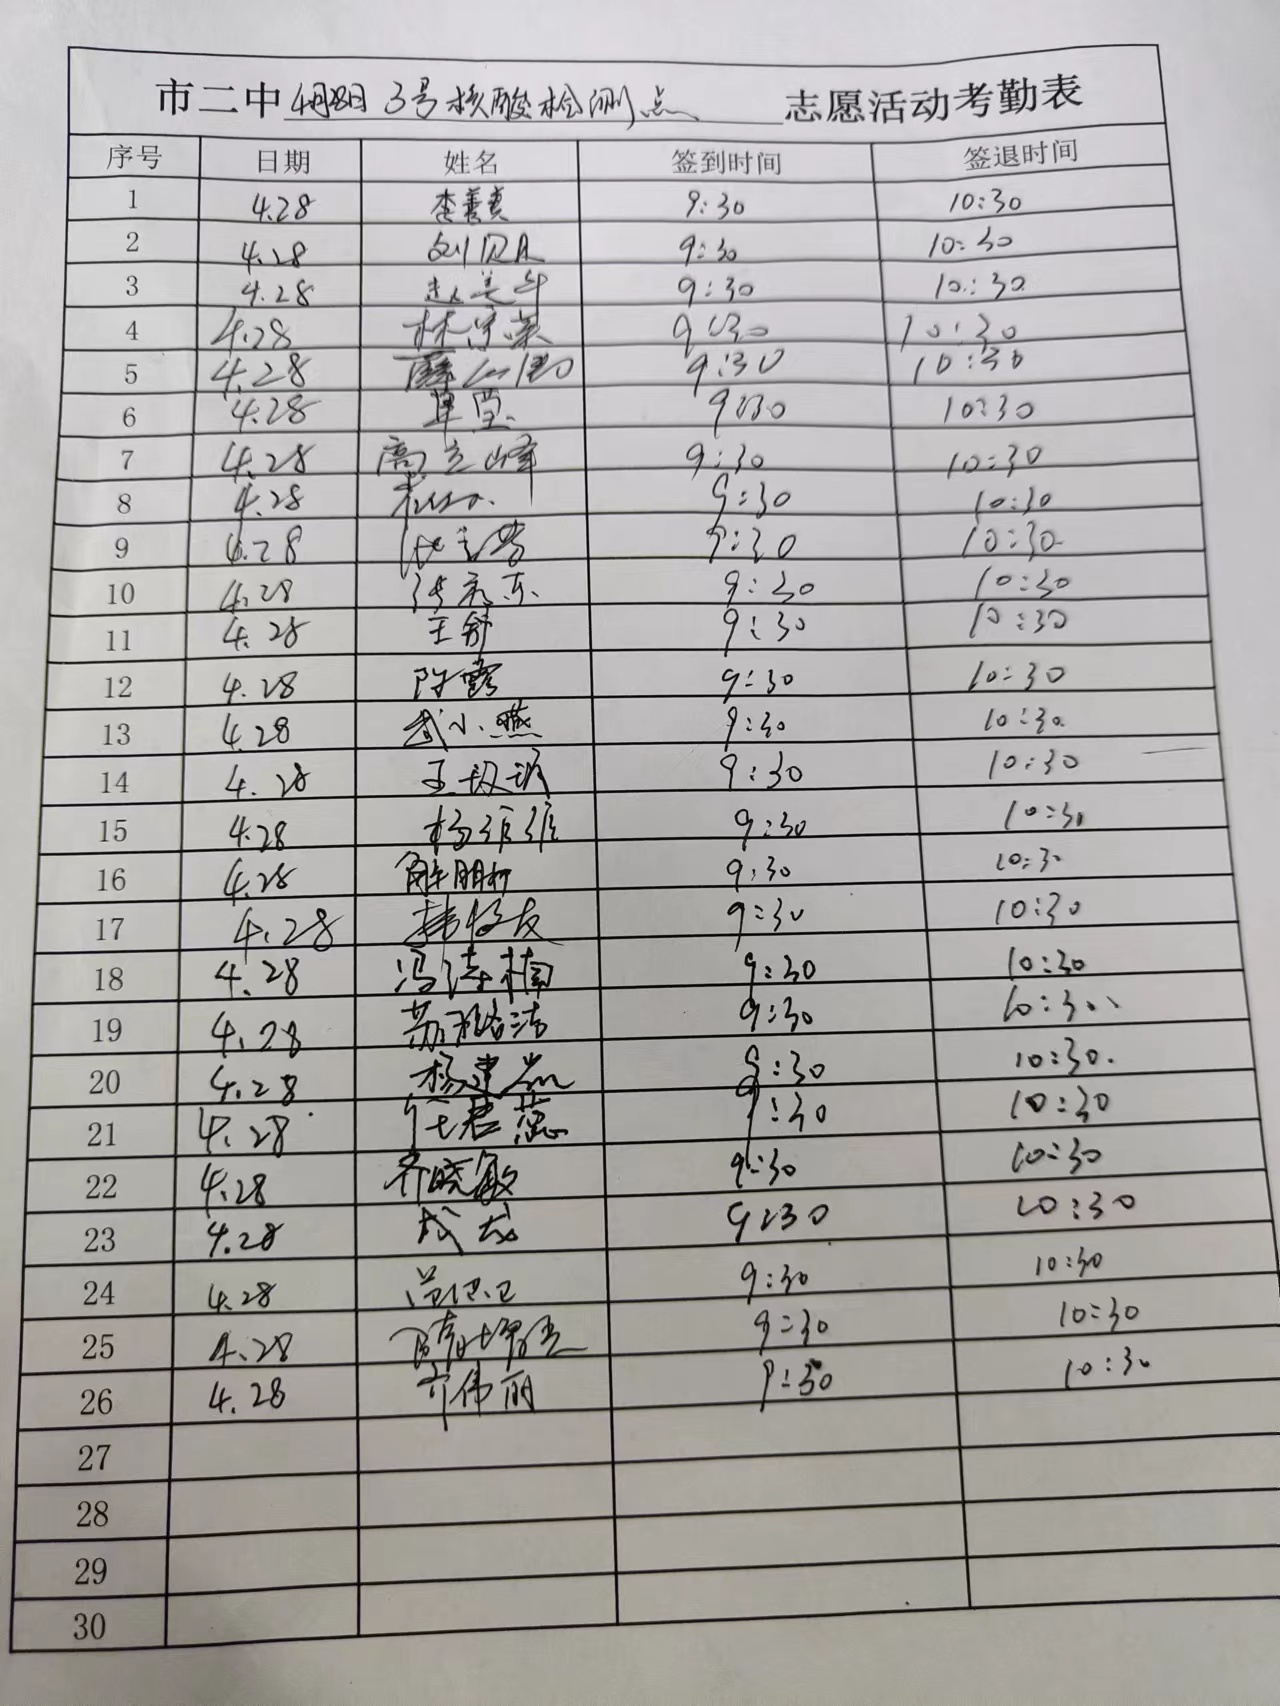 市二中4月28日 3号核酸检测点志愿活动考勤表
序号 日期 姓名 签到时间 签退时间
1 4.28 李善真 9:30 10:30
2 4.28 9:30 10:30
3 4.28 9:30 10:30
4 4.28 9:30 10:30
5 4.28 9:30 10:30
6 4.28 9:30 10:30
7 4.28 高立峰 9:30 10:30
8 4.28 9:30 10:30
9 4.28 9:30 10:30
10 4.28 9:30 10:30
11 4.28 王舒 9:30 10:30
12 4.28 陈露 9:30 10:30
13 4.28 武小燕 9:30 10:30
14 4.28 9:30 10:30
15 4.28 杨维维 9:30 10:30
16 4.28 9:30 10:30
17 4.28 9:30 10:30
18 4.28 9:30 10:30
19 4.28 9:30 10:30
20 4.28 9:30 10:30
21 4.28 任君蕊 9:30 10:30
22 4.28 齐晓敏 9:30 10:30
23 4.28 成龙 9:30 10:30
24 4.28 9:30 10:30
25 4.28 9:30 10:30
26 4.28 9:30 10:30
27
28
29
30